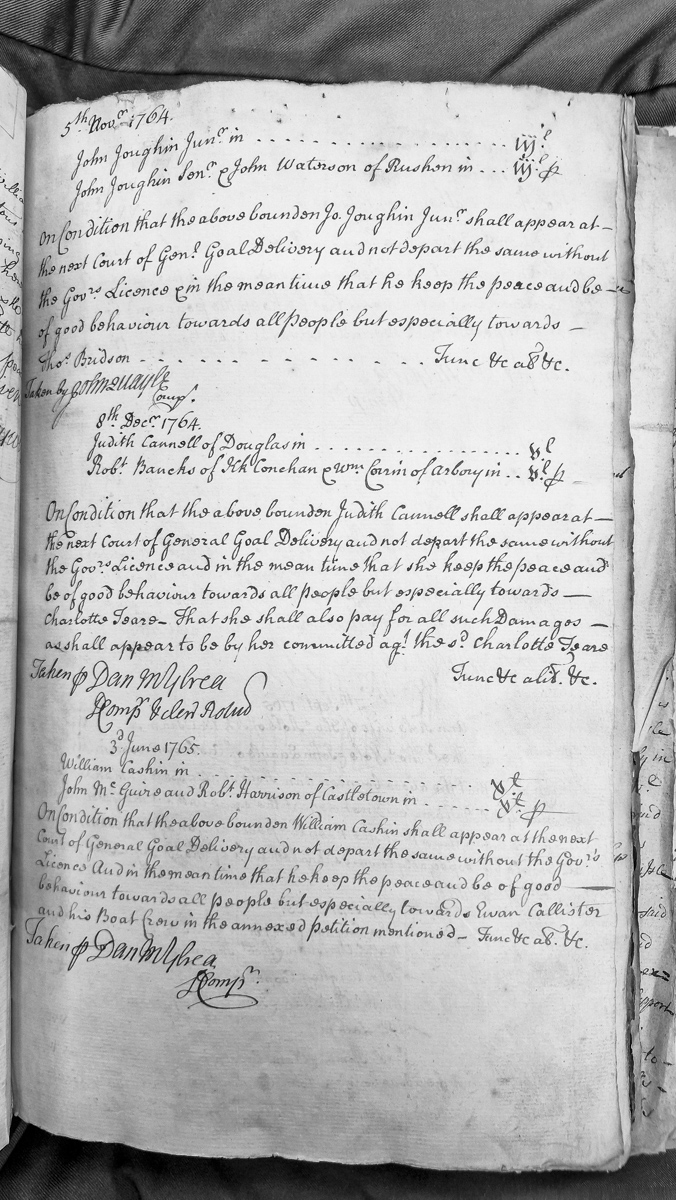 5th Novr. 1764.
John Joughin Junr. in . . . . . . . . . . iij l
John Joughin Senr. & John Waterson of Rushen in ... iij l p
On Condition that the above bounden Jo. Joughin Junr. shall appear at -
the next Court of Genl. Goal Delivery and not depart the same without
the Govrs. Licence & in the mean time that he keep the peace and be -
of good behaviour towards all people but especially towards -
Thos. Bridson - - - - - - - - - - Tunc &c abt. &c.
Taken by John Quayle
Compr.
8th Decr. 1764.
Judith Cannell of Douglas in . . . . . . . . . . v. l
Robt. Bancks of Kk Conchan & Wm. Corrin of Arbory in .. v. l p
On Condition that the above bounden Judith Cannell shall appear at -
the next Court of General Goal Delivery and not depart the same without
the Govrs. Licence and in the mean time that she keep the peace and
be of good behaviour towards all people but especially towards -
Charlotte Teare - That she shall also pay for all such Damages -
as shall appear to be by her committed agt. the sd. Charlotte Teare
Taken p Dan Mylrea Tunc &c alit. &c.
DCompr & Cler Rotud
3d. June 1765.
William Cashin in . . . . . . . . . . v. l
John Mc. Guire and Robt. Harrison of Castletown in . . . . v. l p
On Condition that the above bounden William Cashin shall appear at the next
Court of General Goal Delivery and not depart the same without the Govrs
Licence And in the mean time that he keep the peace and be of good -
behaviour towards all people but especially towards Ewan Callister
and his Boat Crew in the annexed petition mentioned - Tunc &c abt. &c.
Taken p Dan Mylrea
DCompr.